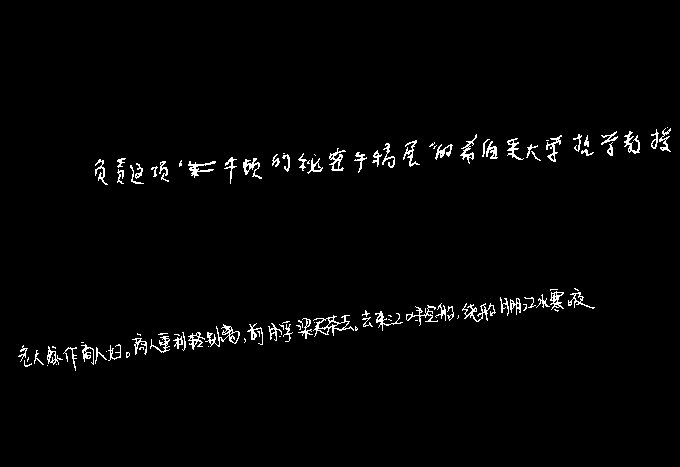 负责这项“牛顿的秘密手稿展”的希伯来大学哲学教授
老大嫁作商人妇。商人重利轻别离,前月浮梁买茶去。去来江口守空船,绕船月明江水寒。夜